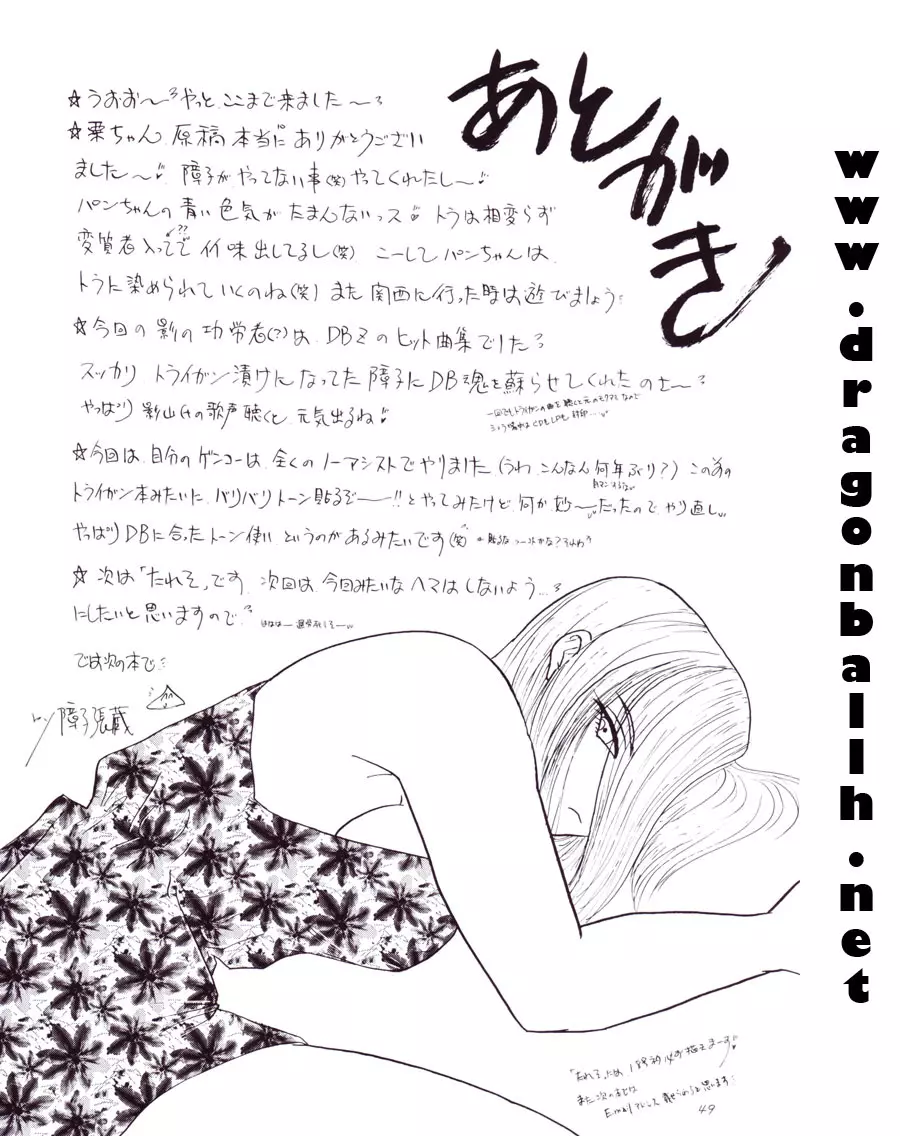 あとがき
☆うおお〜やっと、ここまで来ました〜
☆栗ちゃん、原稿本当にありがとうござい
ました〜 障子がやってない事(笑)やってくれたし〜
パンちゃんの青い色気がたまんないっス トラは相変らず
変質者入ってて??イイ味出してるし(笑) こーしてパンちゃんは、
トラに染められていくのね(笑) また関西に行った時は遊びましょう
☆今回の影の功労者(?)は、DBZのヒット曲集でした
スッカリトライガン漬けになってた障子にDB魂を蘇らせてくれたのさ〜
やっぱり影山氏の歌声聴くと、元気出るね
☆今回は、自分のゲンコーは、全くのノーアシストでやりました(うわ、こんなん何年ぶり?) この前の
トライガン本みたいに、バリバリトーン貼るぞ——!!とやってみたけど、何か妙〜だったので、やり直し
やっぱりDBに合ったトーン使いというのがあるみたいです(笑)
☆次は「たれそ」です、次回は、今回みたいなヘマはしないよう...
にしたいと思いますので
では次の本で
障子張蔵
また次の本では
Emailアドレス 思います
49
www.dragonballh.net